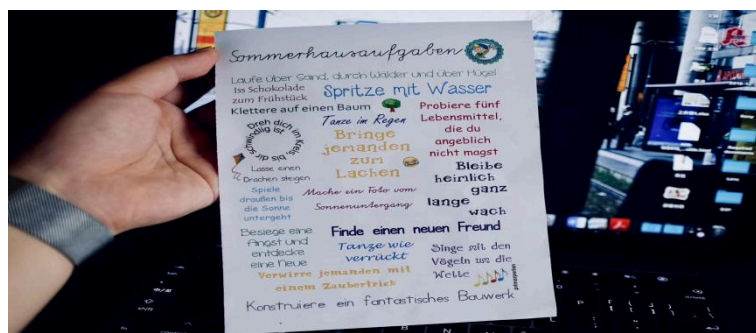 Sommerhausaufgaben
Laufe über Sand, durch Wälder und über Hügel
Iss Schokolade
zum Frühstück
Spritze mit Wasser
Klettere auf einen Baum
Dreh dich im Kreis, bis dir schwindlig ist
Tanze im Regen
Probiere fünf
Lebensmittel,
die du
angeblich
nicht magst
Bringe
jemanden
zum
Lachen
Lasse einen
Drachen steigen
Bleibe
heimlich
ganz
lange
wach
Spiele
draußen bis
die Sonne
untergeht
Mache ein Foto vom
Sonnenuntergang
Besiege eine
Angst und
entdecke
eine Neue
Finde einen neuen Freund
Tanze wie
verrückt
Singe mit den
Vögeln um die
Wette
Verwirre jemanden mit
einem Zaubertrick
Konstruiere ein fantastisches Bauwerk